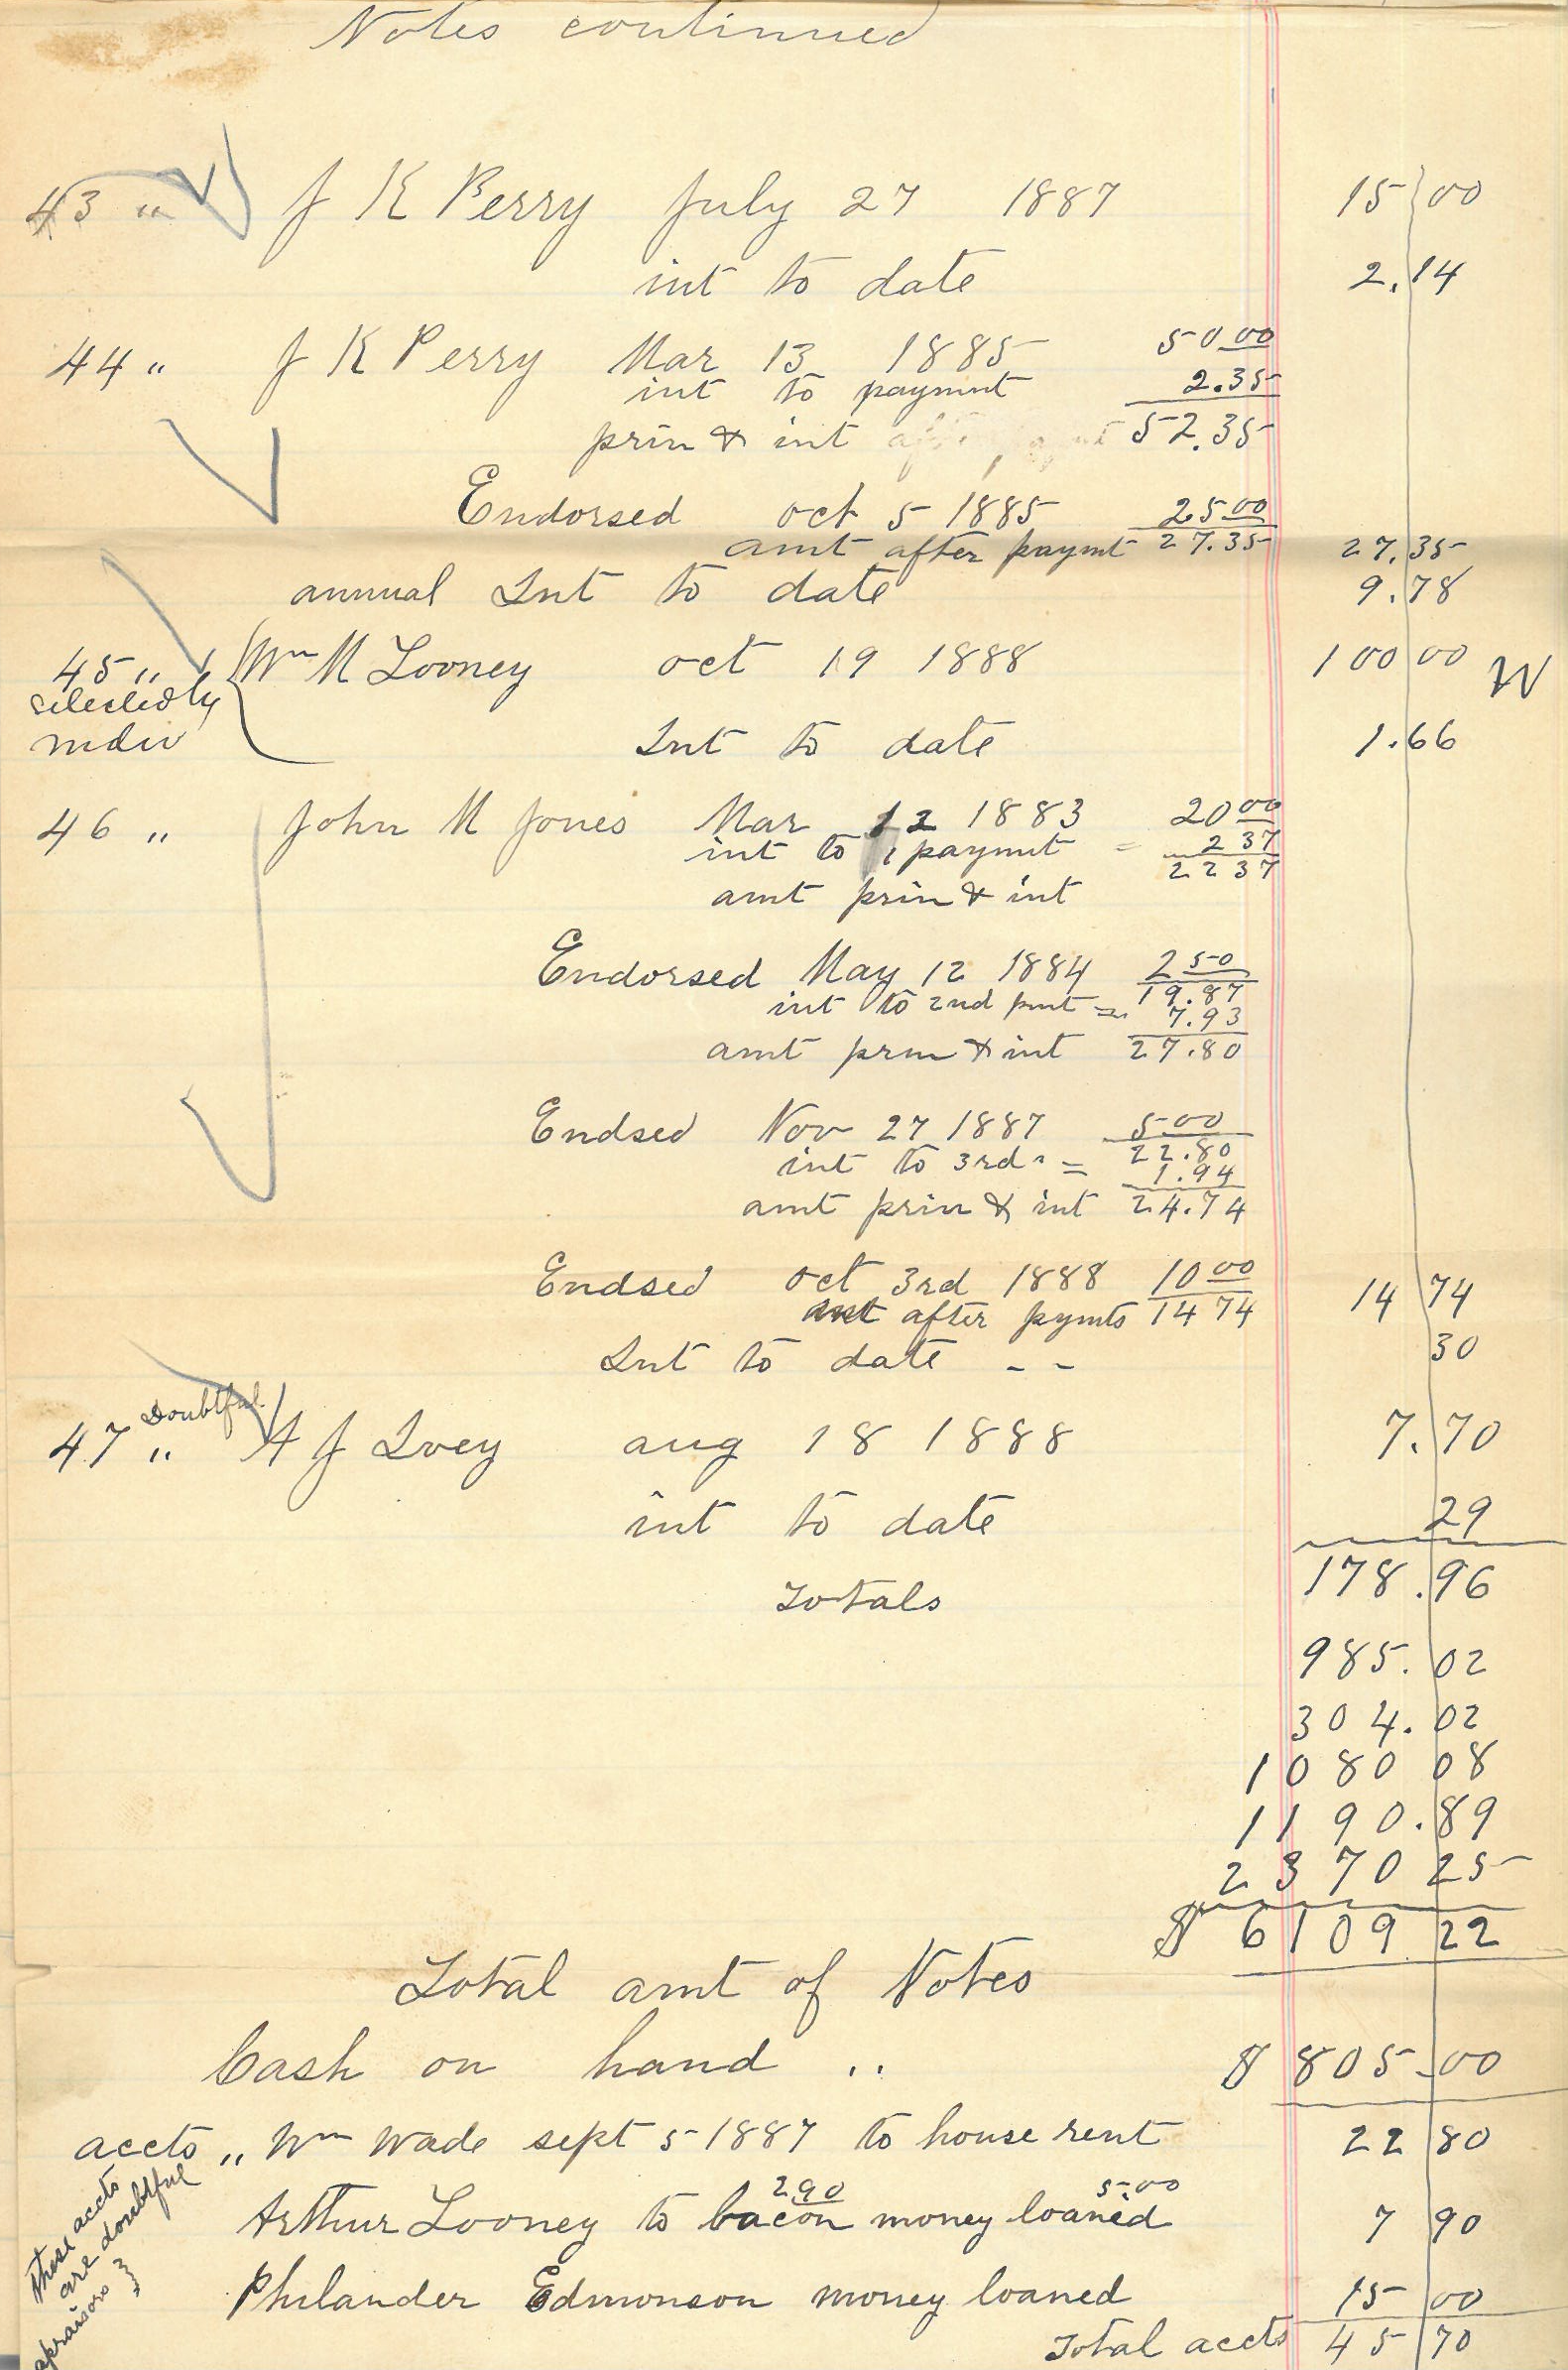 Notes continued
43 " J K Perry July 27 1887 15 00
int to date 2.14
44 " J K Perry Mar 13 1885 50 00
int to paymnt 2.35
prin & int 52.35
Endorsed oct 5 1885 25 00
amt after paymt 27.35 27.35
annual Int to date 9.78
45 " Wm M Looney oct 19 1888 100 00 W
by
Int to date 1.66
46 " John M Jones Mar 12 1883 20 00
int to 1 paymnt = 2 37
22 37
amt prin & int
Endorsed May 12 1884 2 50
19.87
int to 2nd pmt = 7.93
amt prin & int 27.80
Endsed Nov 27 1887 5.00
22.80
int to 3rd " = 1.94
amt prin & int 24.74
Endsed oct 3rd 1888 10 00
amt after pymts 14 74 14 74
Int to date - - 30
47 " Doubtful A J Ivey aug 18 1888 7.70
int to date 29
Totals 178.96
985.02
304.02
1080 08
1190.89
2370 25
$ 6109 22
Total amt of Notes
Cash on hand .. $ 805.00
accts " Wm Wade sept 5 1887 to house rent 22 80
2 90 5.00
Arthur Looney to bacon money loaned 7 90
Philander Edmonson money loaned 15 00
Total accts 45 70
These accts
are doubtful
apraisors }